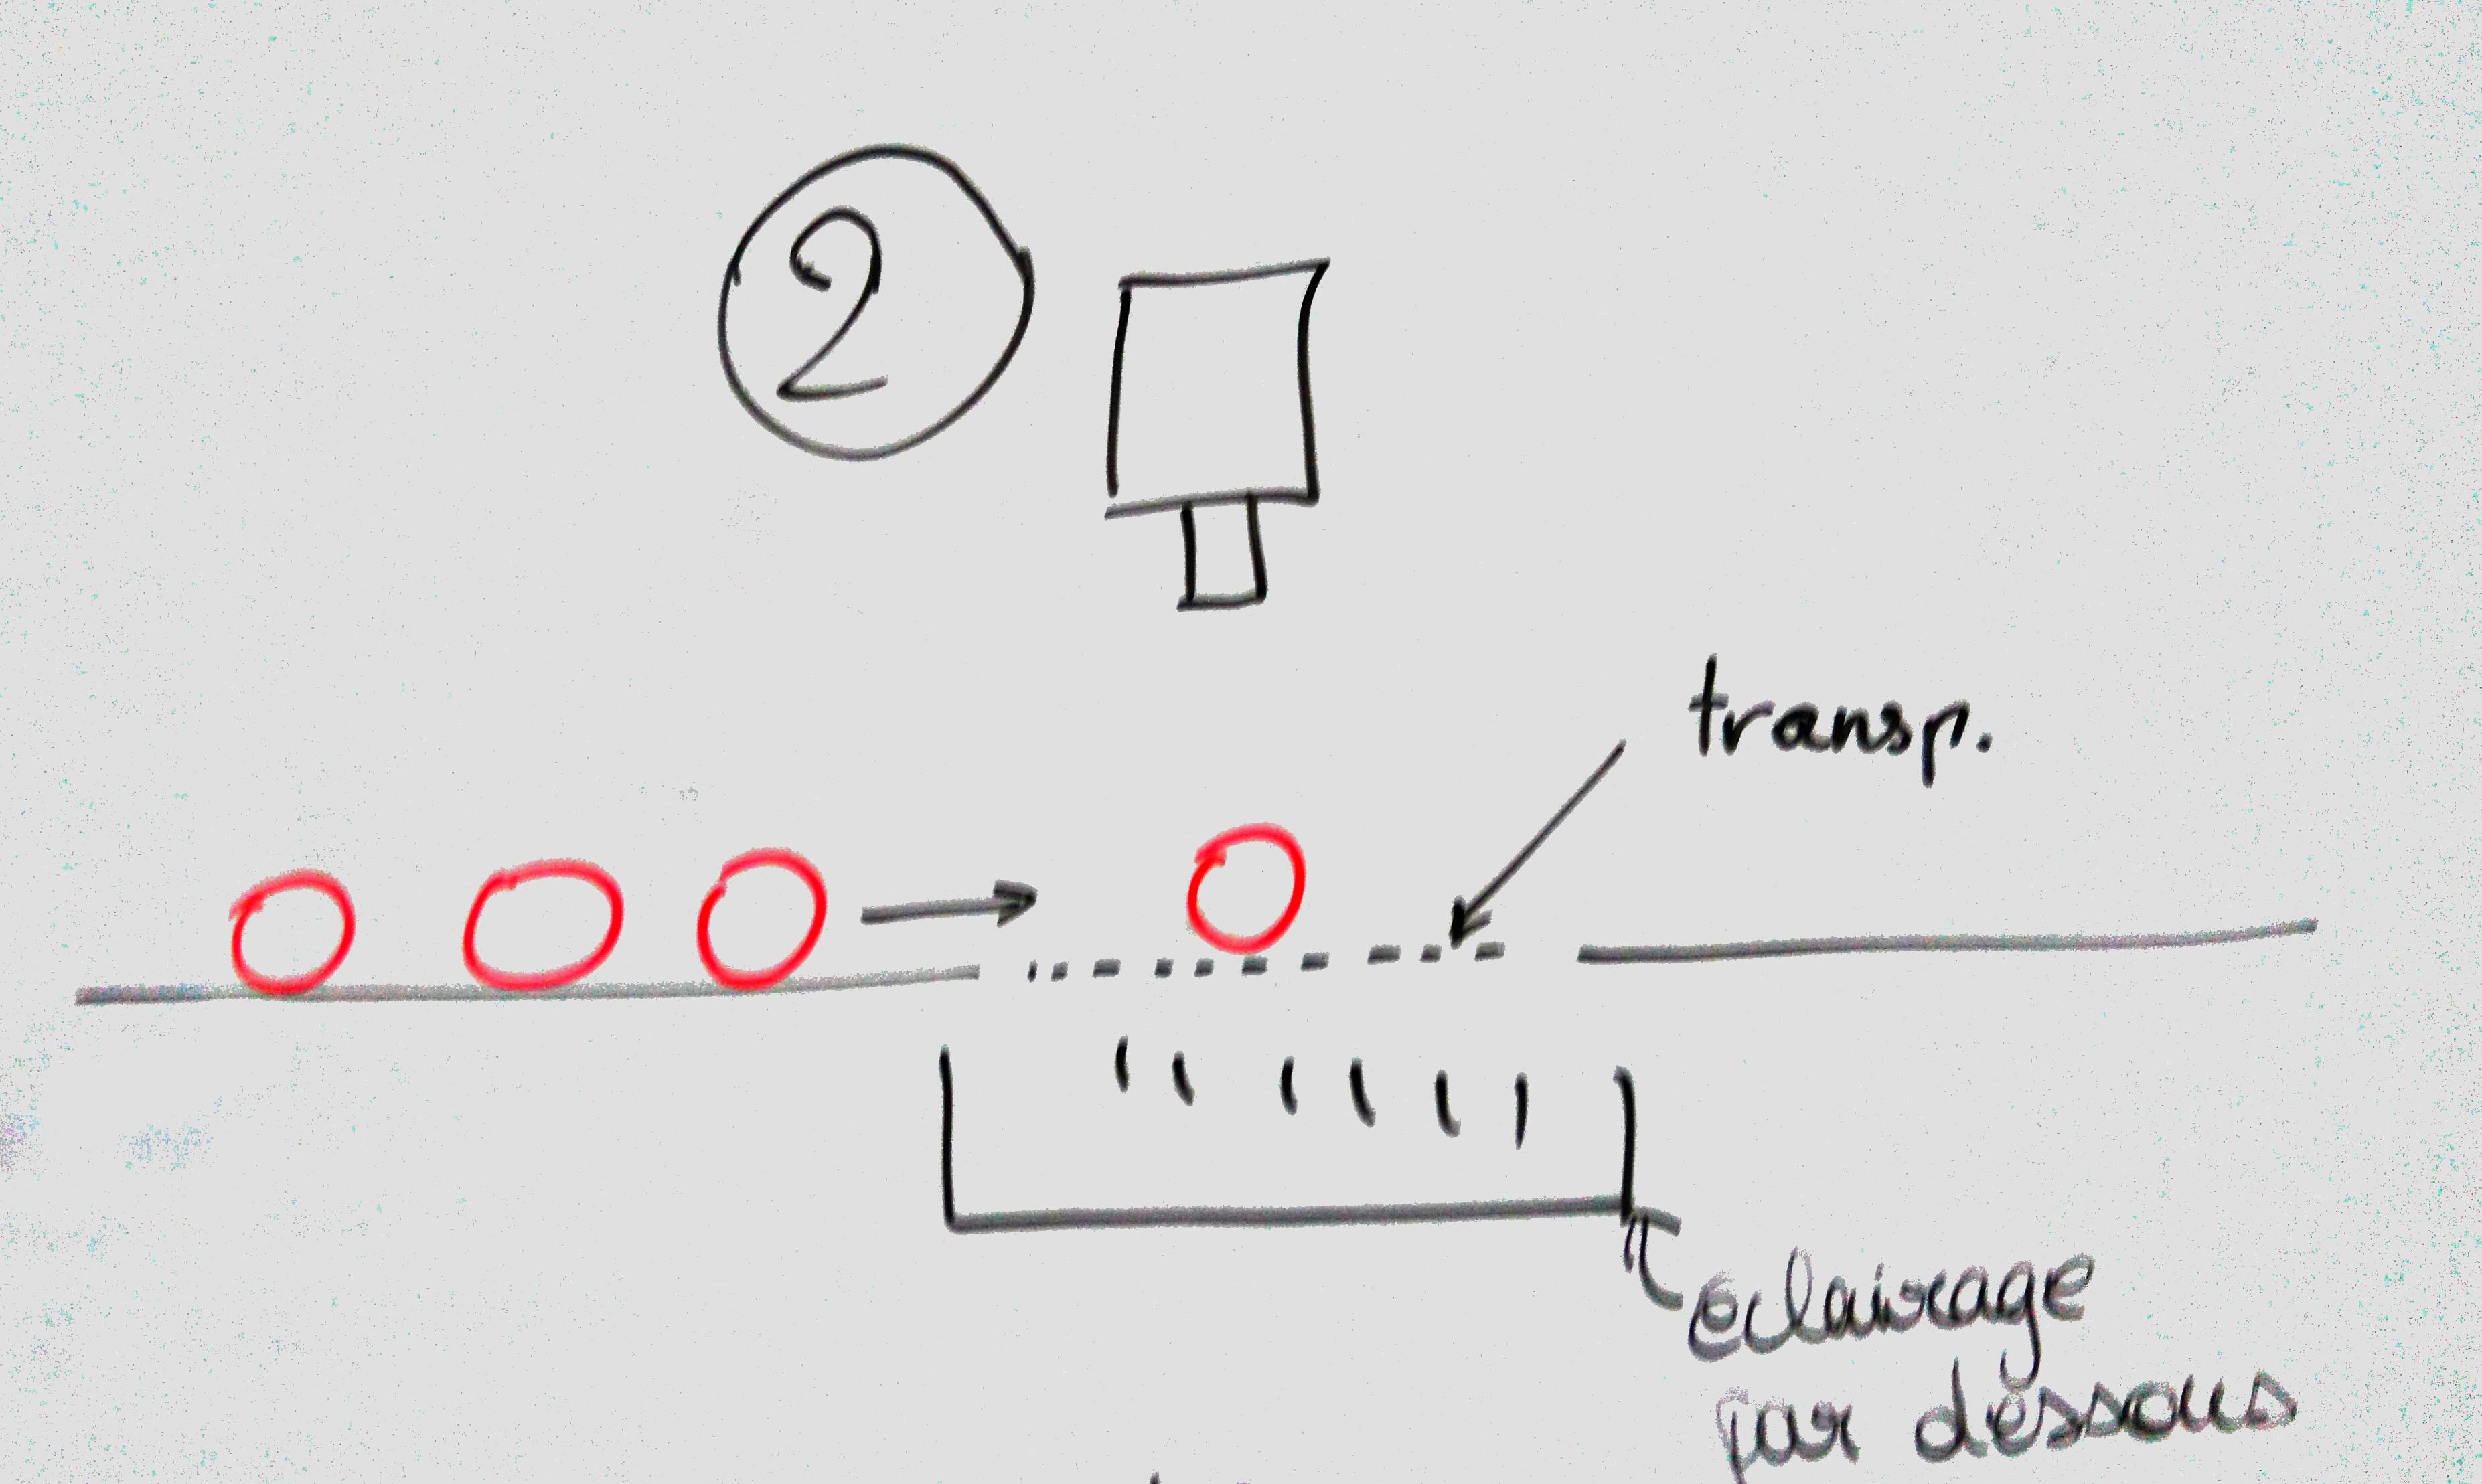 2
transp.
eclairage
par dessous